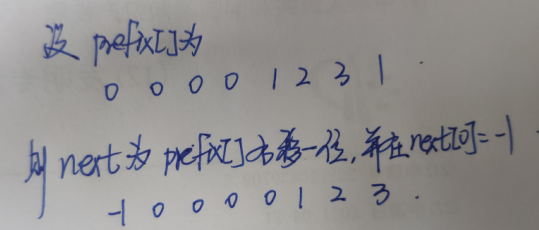 设 prefix[]为
0 0 0 0 1 2 3 1 .
则 next为 prefix[]右移一位,并在next[0]=-1
-1 0 0 0 0 1 2 3 .